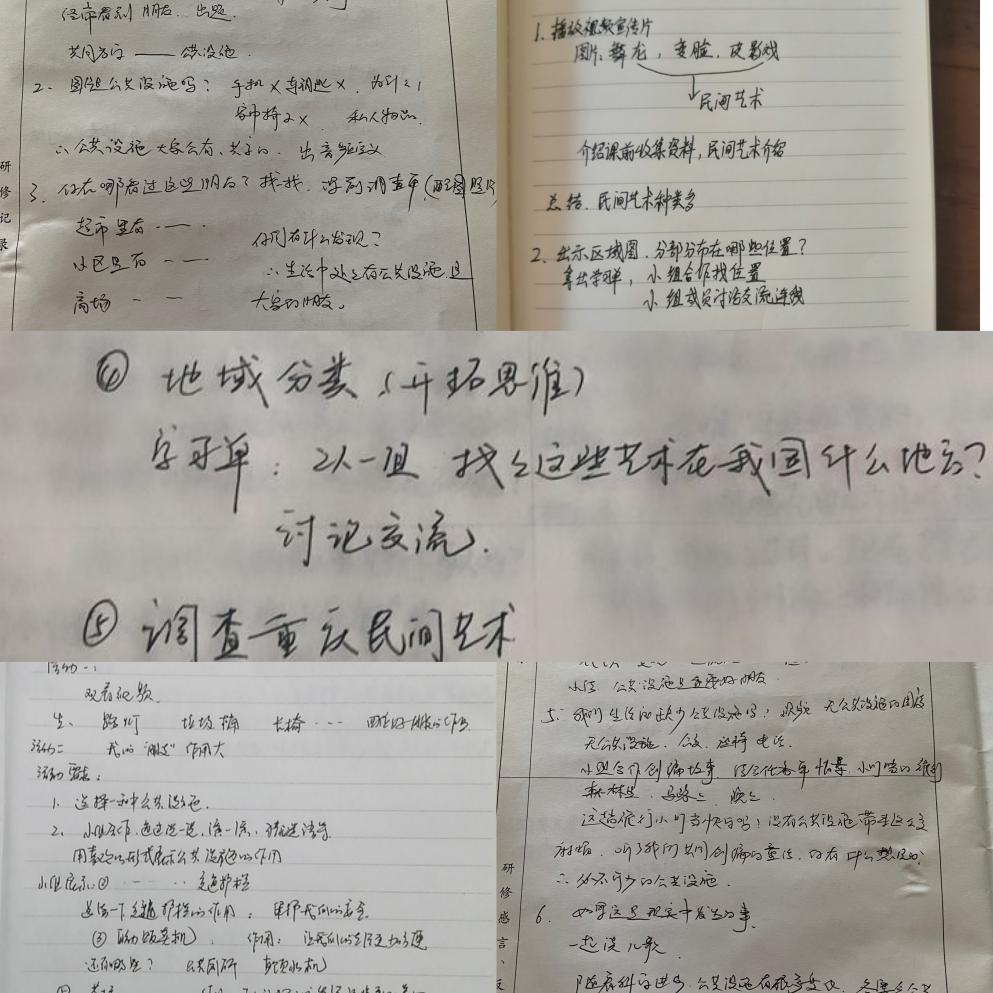 经常看到 朋友. 出题.
共同名字 —— 公共设施.
2. 图是公共设施吗? 手机 × 车钥匙 ×. 为什么
家中椅子 × 私人物品.
∴ 公共设施 大家公有、共享的. 出音频定义
3. 你在哪看过这些朋友? 找找. 课前调查单(配图照片
超市里有 ·—— ·
你们有什么发现?
小区里有 — —
∴ 生活中处处有公共设施,是
商场 — —
大家的朋友。
研
修
记
录
1. 播放视频宣传片
图片: 舞龙, 变脸, 皮影戏
民间艺术
介绍课前收集资料, 民间艺术介绍
总结. 民间艺术种类多
2. 出示区域图. 分部分布在哪些位置?
拿出学习单, 小组合作找位置
小组成员讨论交流连线
④ 地域分类 (开拓思维)
学习单: 2人一组 找找这些艺术在我国什么地方?
讨论交流.
⑤ 调查重庆民间艺术
活动一:
观看视频.
生: 路灯 垃圾桶 长椅 ···
活动二 我的"朋友"作用大
活动要求:
1. 选择一种公共设施.
2. 小组合作, 通过说一说, 演一演,
用喜欢的形式展示公共设施的作用
小组展示: ① — — ·· 交通护栏
作用: 保护我们的安全.
② 作用: 让我们的
还有哪些?
小结: 公共设施是重要好朋友.
5. 我们生活的缺少公共设施吗? 视频 无公共设施的图片
无公共设施. 座椅 电话.
小组合作创编故事.
森林里. 马路上. 晚上
这趟旅行小
没有公共设施带来这么多
麻烦. 听了我们共同创编的童话, 你有什么想说的?
∴ 必不可少的公共设施.
6. 如果这是现实中发生的事.
一起读儿歌
研
修
感
言
、
反